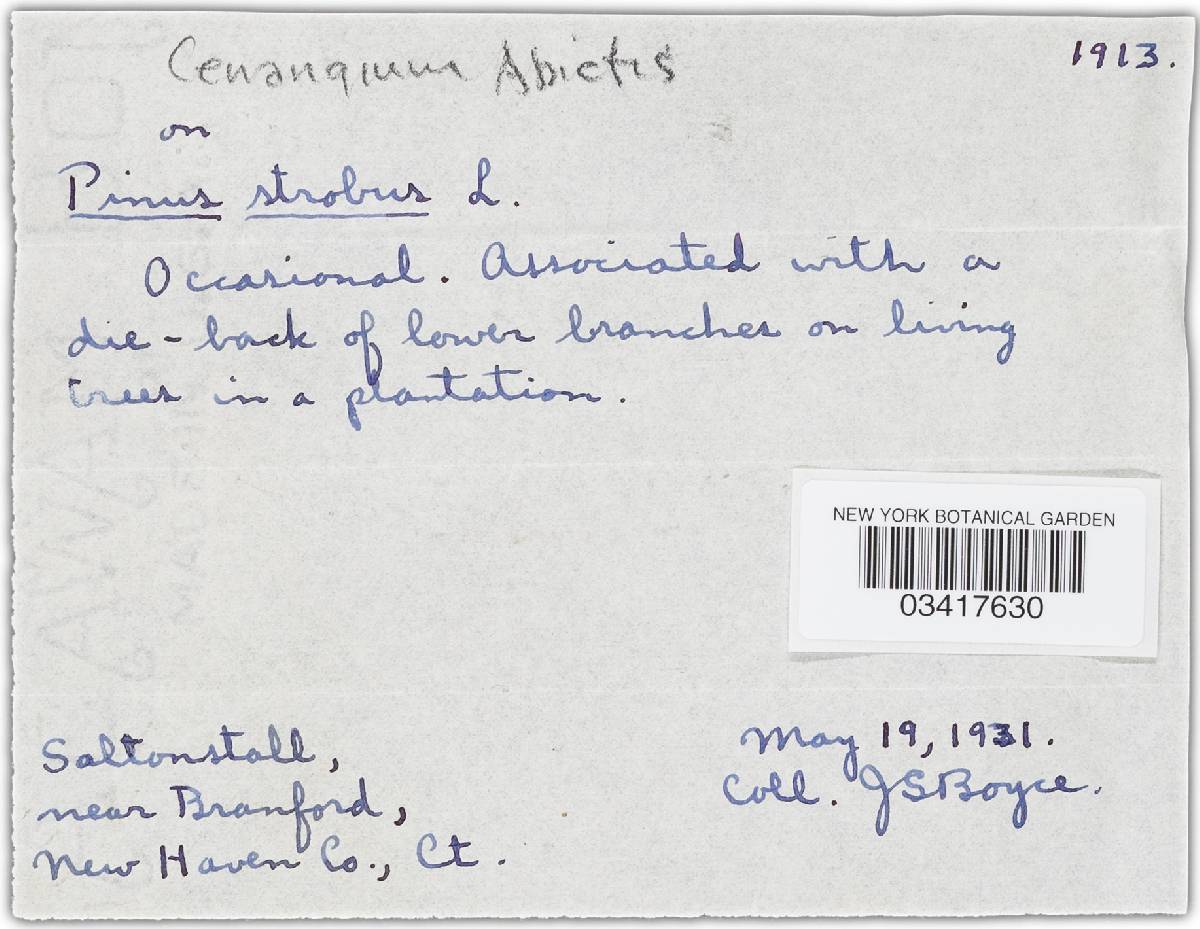 Cenangium Abietis
1913.
on
Pinus strobus L.
Occasional. Associated with a
die-back of lower branches on living
trees in a plantation.
NEW YORK BOTANICAL GARDEN
03417630
Saltonstall,
near Branford,
New Haven Co., Ct.
May 19, 1931.
Coll. JSBoyce.